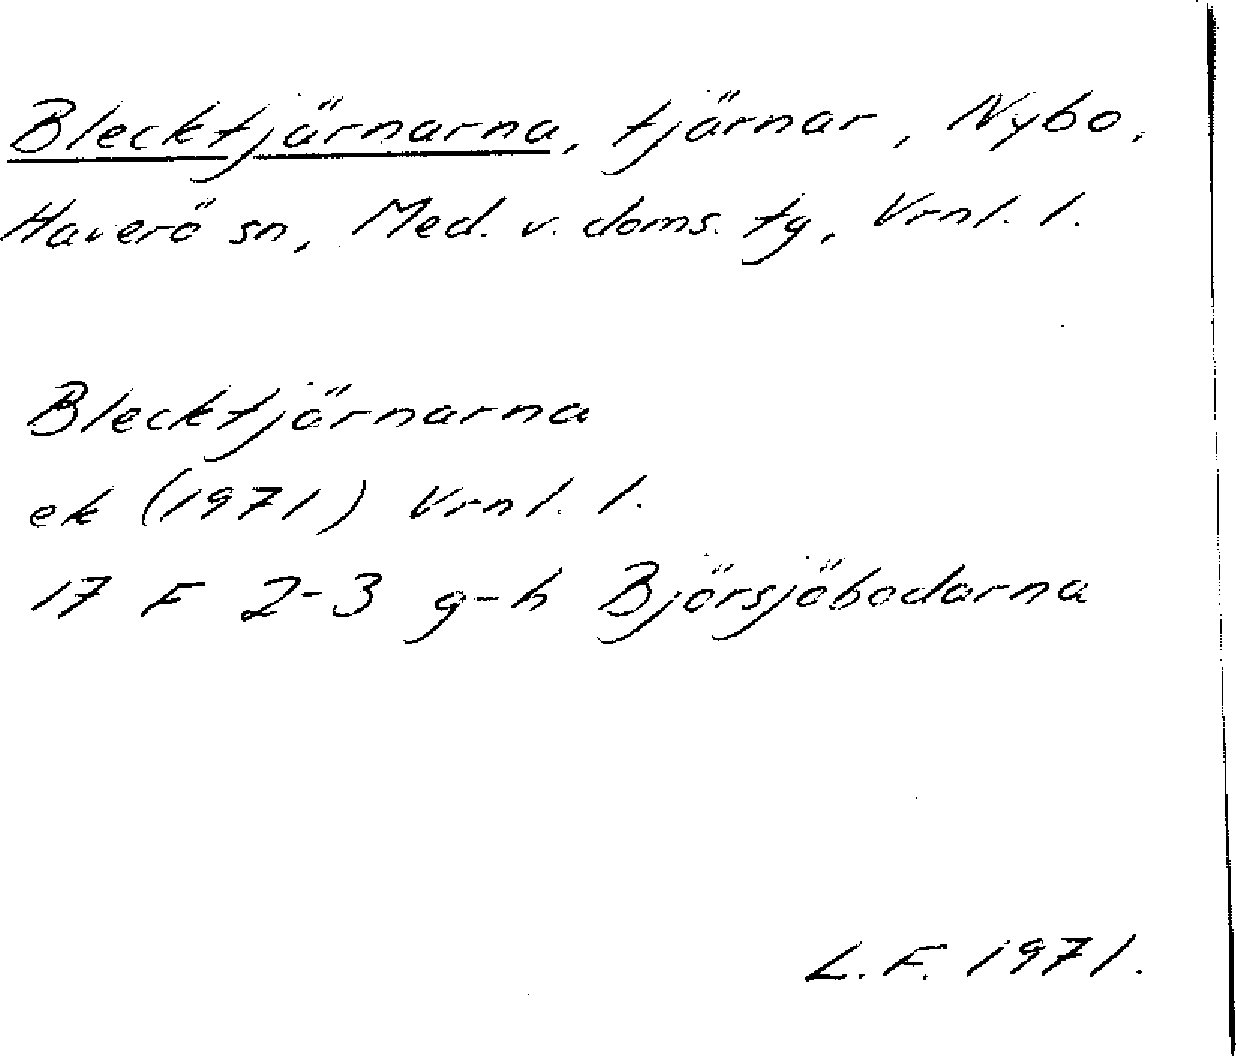 Blecktjärnarna, tjärnar, Nybo,
Haverö sn, Med. v. doms. tg, Vrnl. l.
Blecktjärnarna
ek (1971) Vrnl. l.
17 F 2-3 g-h Björsjöbodarna
L.F. 1971.